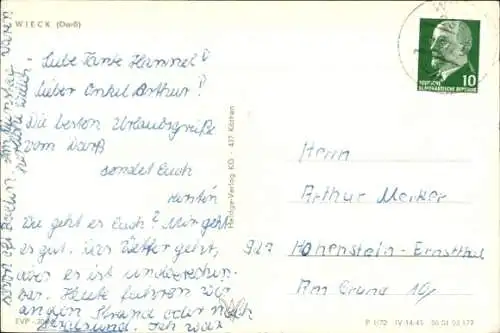 WIECK (Darß)
Liebe Tante Hannel!
Lieber Onkel Arthur!
Die besten Urlaubsgrüße
vom Darß
sendet Euch
Kerstin
Wie geht es Euch? Mir geht
es gut. Das Wetter geht,
aber es ist
Heute fuhren wir
an den Strand oder nach
Stralsund. Ich war
schon oft Baden. Am
waren
EVP
Heldge-Verlag KG · 437 Köthen
DEUTSCHE
DEMOKRATISCHE REPUBLIK
10
Herrn
Arthur Merker
927 Hohenstein-Ernstthal
Am Grund 10
P 1/72 IV-14-45 06 01 03 172